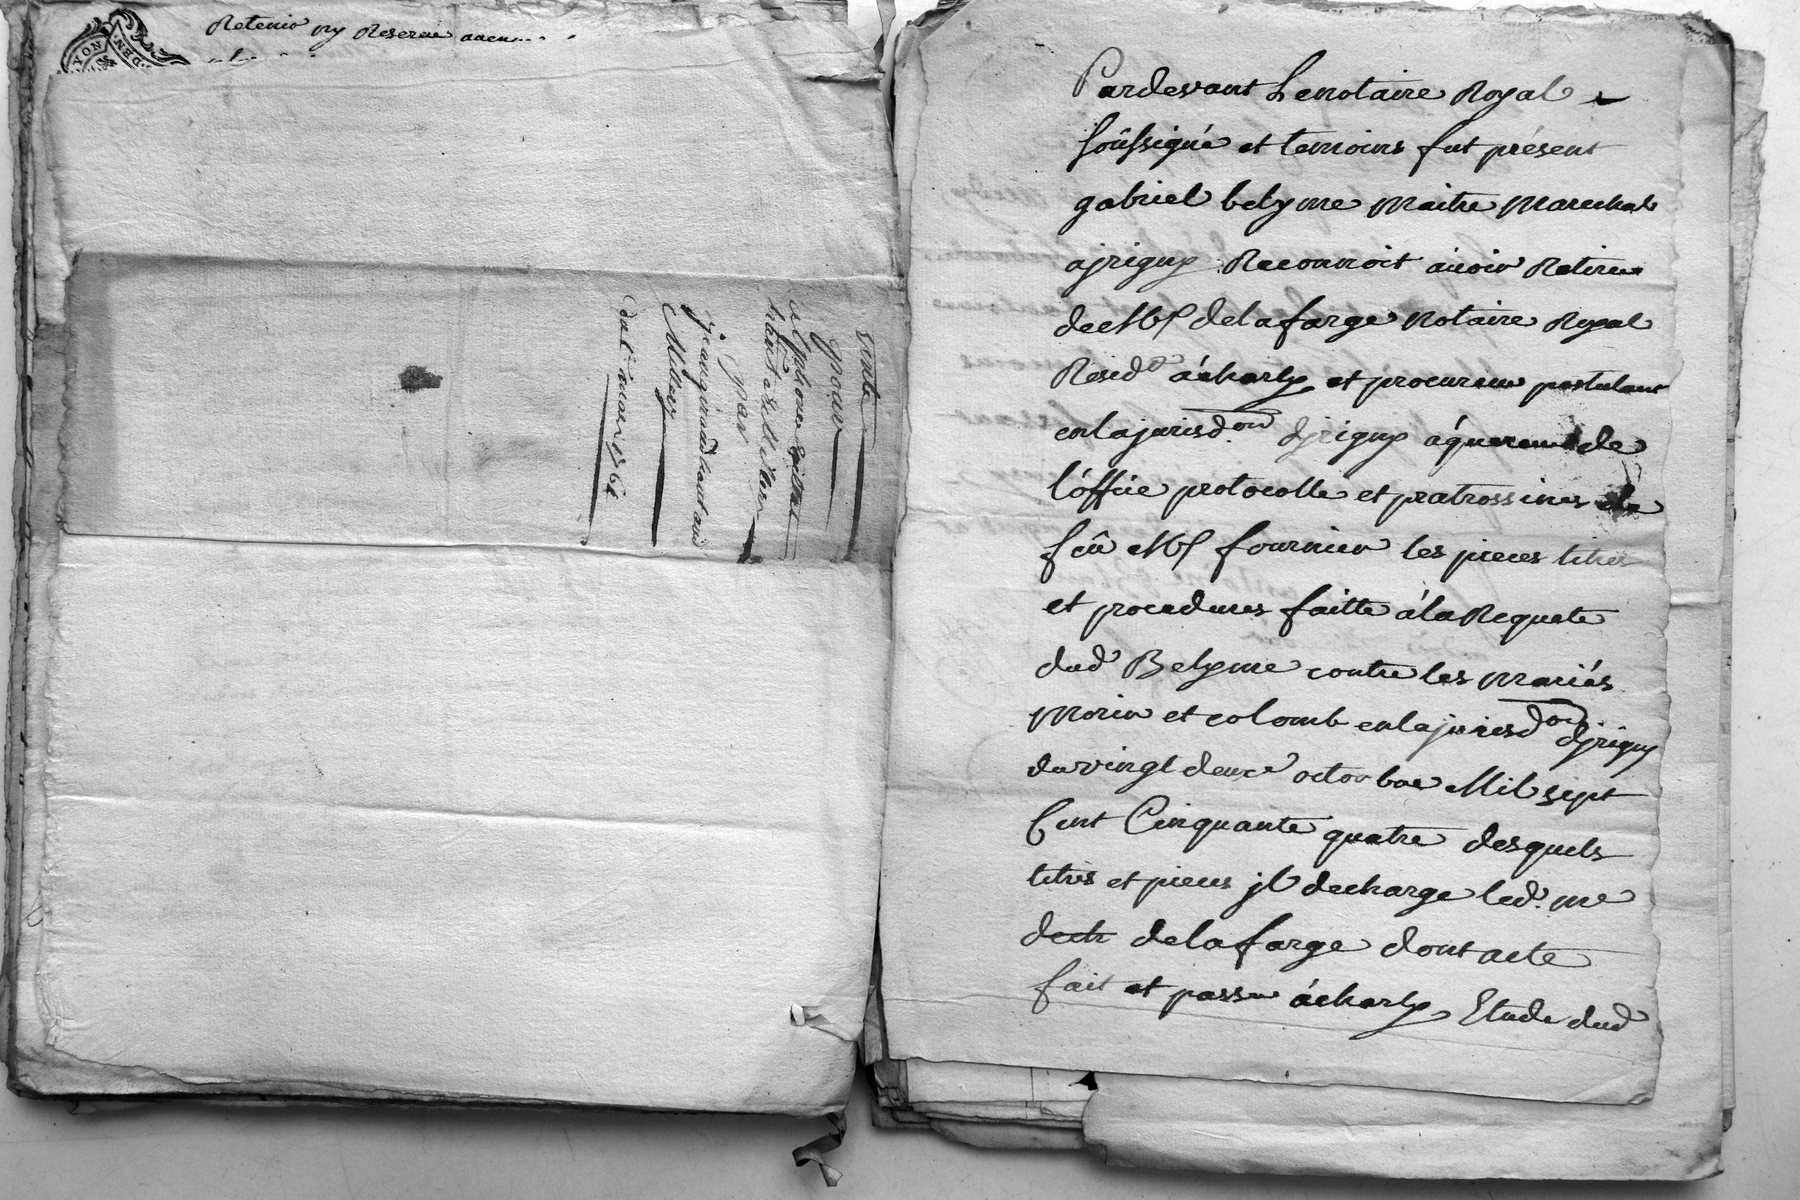 Retenir ny Reserve aucun
LYON
DEN.
vente
pour
par
jean giraud
Millery
du 1er mars 1761
Pardevant Le notaire Royal
soûssigné et temoins fut présent
gabriel belyme maitre marechal
ajrigny Reconnoit avoir Retirer
de Me delafarge notaire Royal
Resid.t àcharly et procureur postulant
enlajurisd.on djrigny áquereur de
l'óffice protocolle et patrossines de
feû Me fournier les pieces titres
et procedures faitte álaRequete
dud Belyme contre les mariés
morin et colomb enlajurisd.on djrigny
du vingt deuxe octobre Mil sept
Cent Cinquante quatre desquels
titres et pieces jl decharge led. me
delafarge dont acte
fait et passé ácharly Etude dud